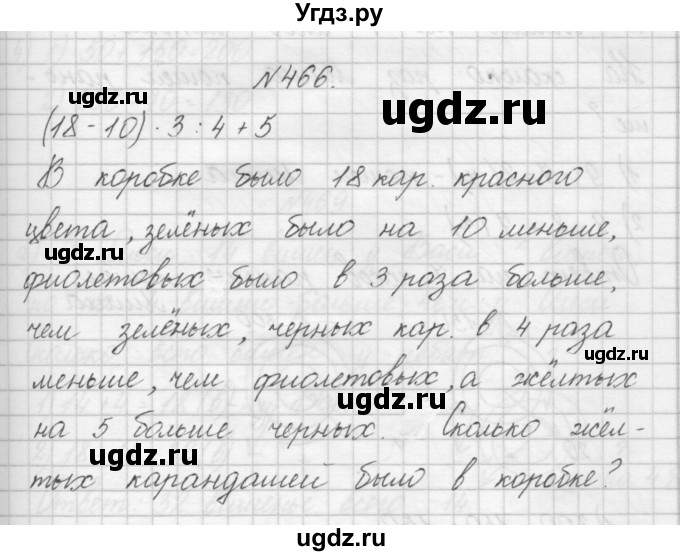 Угдз.ру
№466.
(18-10)·3:4+5
В коробке было 18 кар. красного
цвета, зелёных было на 10 меньше,
фиолетовых было в 3 раза больше,
чем зелёных, черных кар. в 4 раза
меньше, чем фиолетовых, а жёлтых
на 5 больше черных. Сколько жёл-
тых карандашей было в коробке?
ugdz.ru
ugdz.ru
ugdz.ru
ugdz.ru
ugdz.ru
ugdz.ru
ugdz.ru
ugdz.ru
ugdz.ru
ugdz.ru